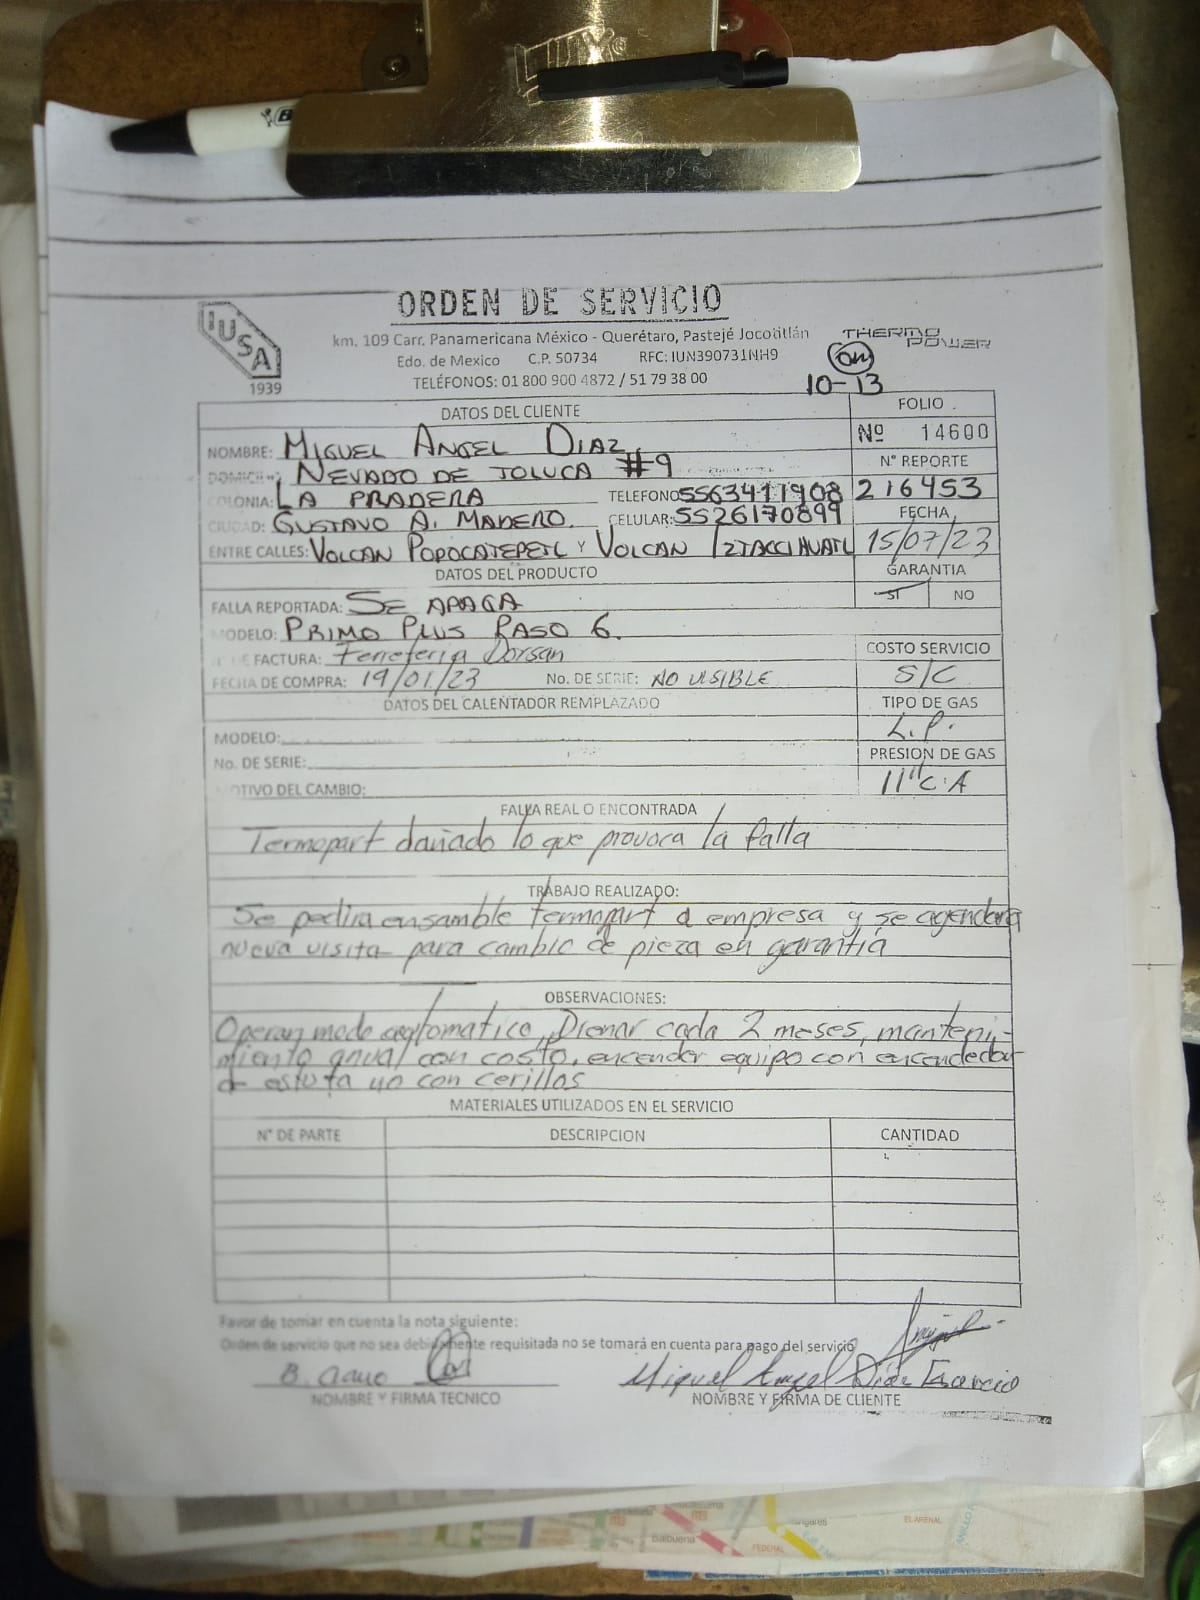 ORDEN DE SERVICIO
IUSA
1939
km. 109 Carr. Panamericana México - Querétaro, Pastejé Jocotitlán
Edo. de Mexico C.P. 50734 RFC: IUN390731NH9
TELÉFONOS: 01 800 900 4872 / 51 79 38 00
THERMO
POWER
10-13
DATOS DEL CLIENTE
FOLIO
Nº 14600
NOMBRE: MIGUEL ANGEL DIAZ
N° REPORTE
NEVADO DE TOLUCA #9
COLONIA: LA PRADERA TELEFONO 5563411908 216453
CIUDAD: GUSTAVO A. MADERO. CELULAR: 5526170899
FECHA
ENTRE CALLES: VOLCAN POPOCATEPETL Y VOLCAN IZTACCIHUATL 15/07/23
DATOS DEL PRODUCTO
GARANTIA
SI NO
FALLA REPORTADA: SE APAGA
MODELO: PRIMO PLUS PASO 6.
DE FACTURA: Ferreteria Dorsan
COSTO SERVICIO
FECHA DE COMPRA: 19/01/23 No. DE SERIE: NO VISIBLE S/C
DATOS DEL CALENTADOR REMPLAZADO
TIPO DE GAS
L.P.
MODELO:
PRESION DE GAS
No. DE SERIE:
11"C.A
MOTIVO DEL CAMBIO:
FALLA REAL O ENCONTRADA
Termopart dañado lo que provoca la falla
TRABAJO REALIZADO:
Se pedira ensamble termopart a empresa y se agendara
nueva visita para cambio de pieza en garantia
OBSERVACIONES:
Operan modo automatico, Drenar cada 2 meses, manteni-
miento anual con costo, encender equipo con encendedor
d estufa no con cerillos
MATERIALES UTILIZADOS EN EL SERVICIO
N° DE PARTE DESCRIPCION CANTIDAD
Favor de tomar en cuenta la nota siguiente:
Orden de servicio que no sea debidamente requisitada no se tomará en cuenta para pago del servicio
B. Miguel Angel Diaz
NOMBRE Y FIRMA TECNICO NOMBRE Y FIRMA DE CLIENTE
Balbuena
FEDERAL
EL ARENAL